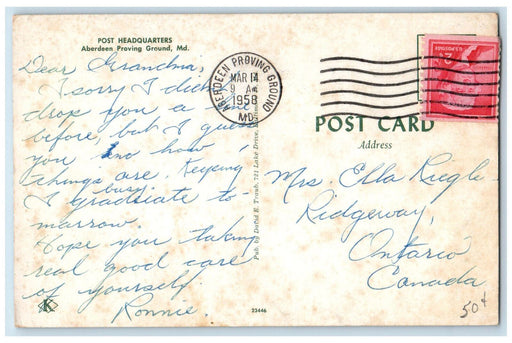 POST HEADQUARTERS
Aberdeen Proving Ground, Md.
Dear Grandma,
I sorry I didn't
drop you a line
before, but I guess
you know how
things are. Keeping
busy.
I graduate to-
marrow.
Hope you taking
real good care
of yourself.
Ronnie.
K
ABERDEEN PROVING GROUND
MAR 14
9 AM
1958
MD.
Pub. by David E. Traub, 721 Lake Drive,
23446
2¢
POST CARD
Address
Mrs. Ella Riegle
Ridgeway,
Ontario
Canada
50¢